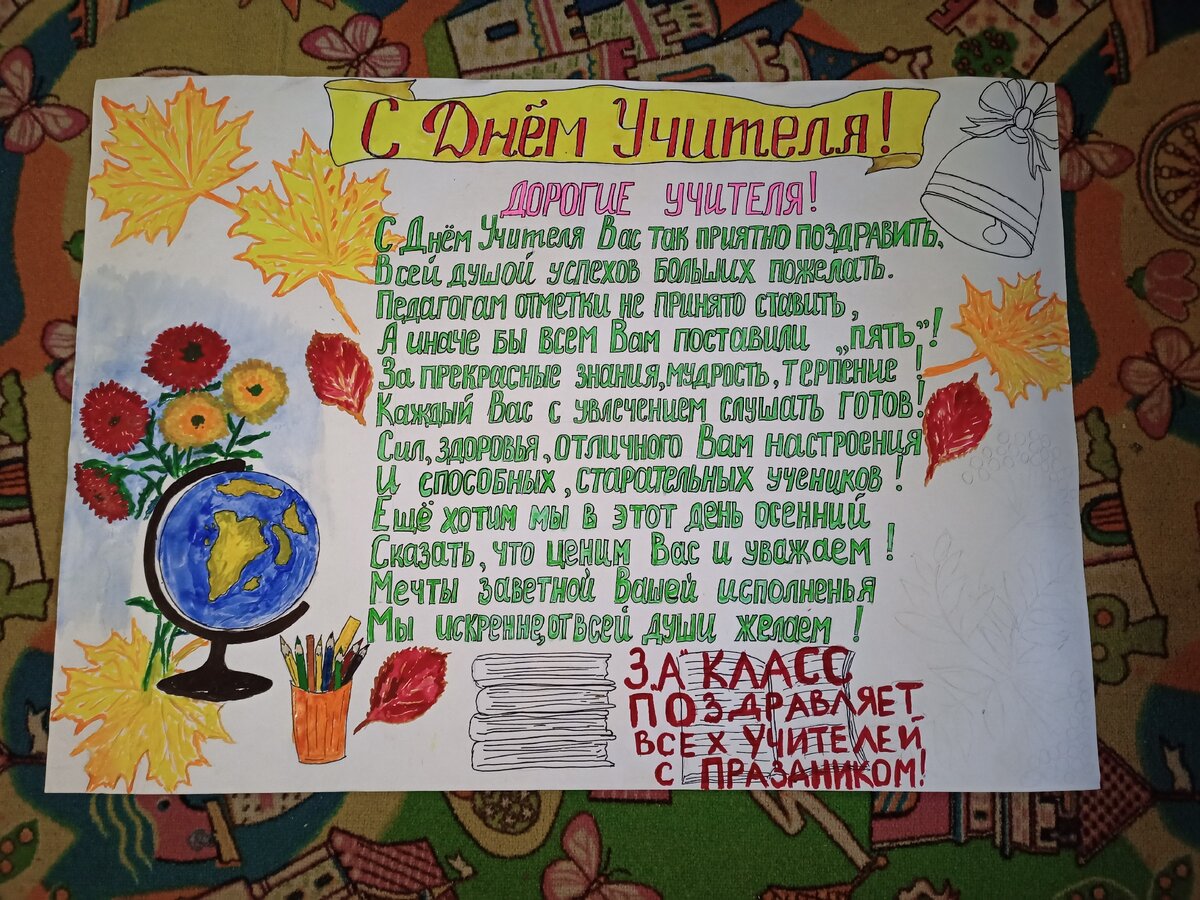 С Днём Учителя!
ДОРОГИЕ УЧИТЕЛЯ!
С Днём Учителя Вас так приятно поздравить,
Всей душой успехов больших пожелать.
Педагогам отметки не принято ставить,
А иначе бы всем Вам поставили „пять"!
За прекрасные знания, мудрость, терпение!
Каждый Вас с увлечением слушать готов!
Сил, здоровья, отличного Вам настроения
И способных, старательных учеников!
Ещё хотим мы в этот день осенний
Сказать, что ценим Вас и уважаем!
Мечты заветной Вашей исполненья
Мы искренне, от всей души желаем!
3„А" КЛАСС
ПОЗДРАВЛЯЕТ
ВСЕХ УЧИТЕЛЕЙ
С ПРАЗАНИКОМ!